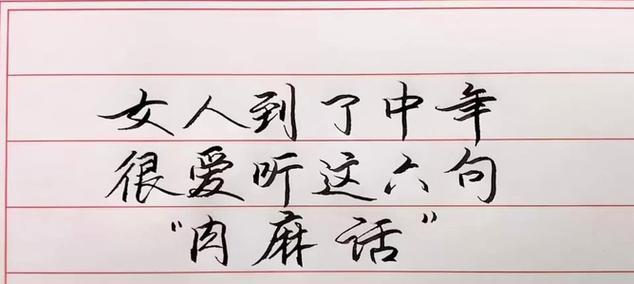 女人到了中年
很爱听这六句
“肉麻话”